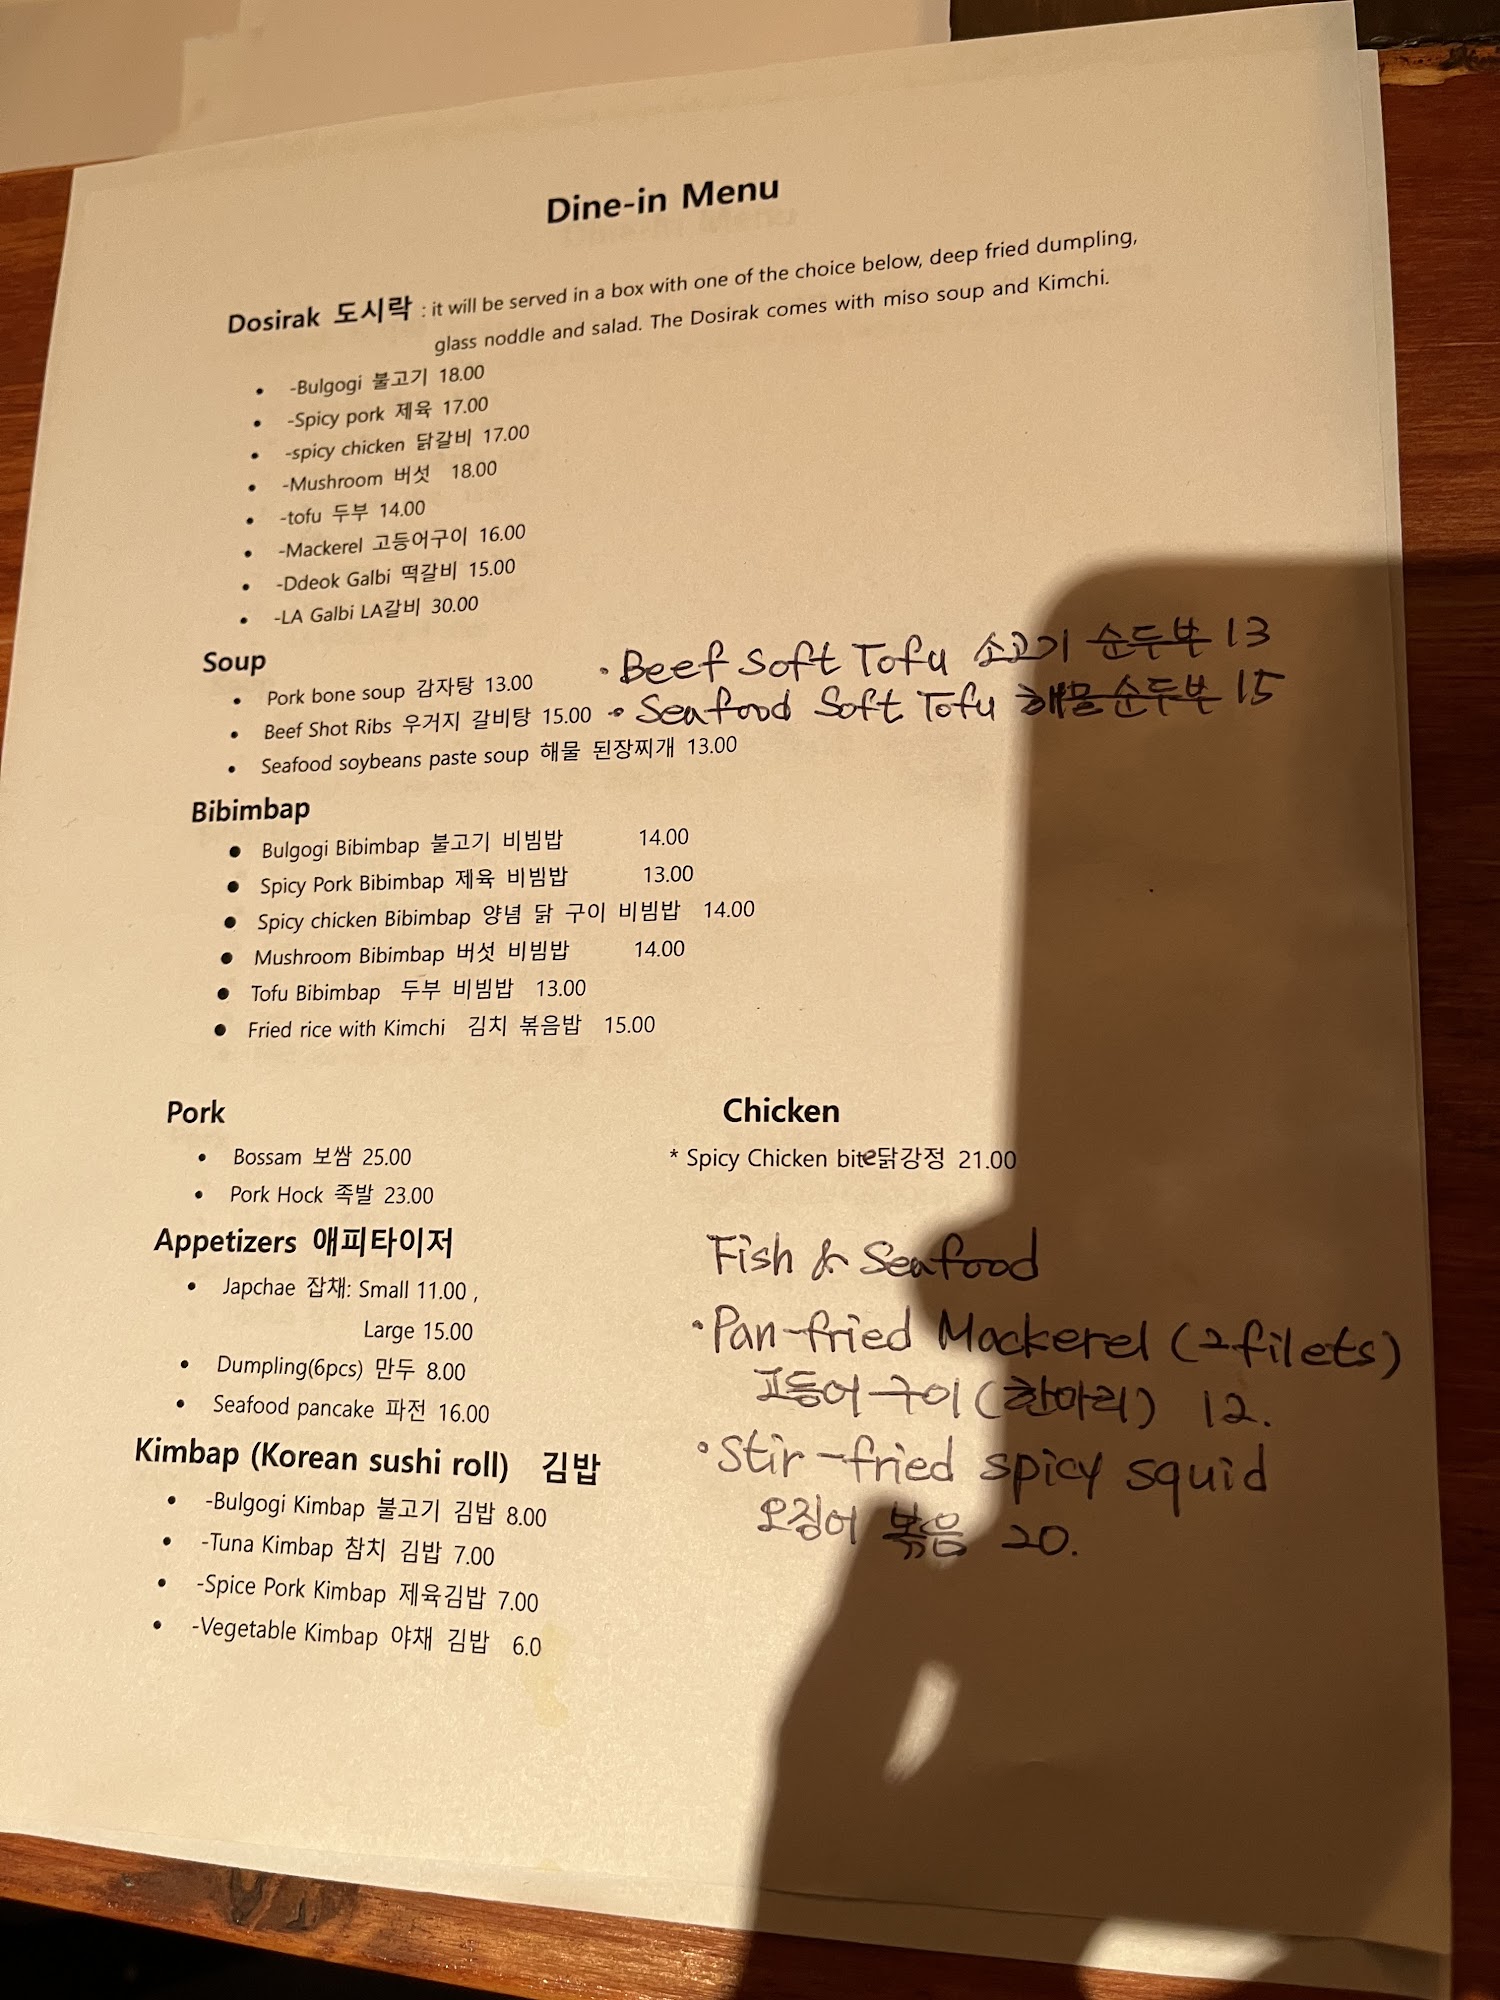 Dine-in Menu
Dosirak 도시락 : it will be served in a box with one of the choice below, deep fried dumpling,
glass noddle and salad. The Dosirak comes with miso soup and Kimchi.
• -Bulgogi 불고기 18.00
• -Spicy pork 제육 17.00
• -spicy chicken 닭갈비 17.00
• -Mushroom 버섯 18.00
• -tofu 두부 14.00
• -Mackerel 고등어구이 16.00
• -Ddeok Galbi 떡갈비 15.00
• -LA Galbi LA갈비 30.00
Soup
• Pork bone soup 감자탕 13.00
• Beef Shot Ribs 우거지 갈비탕 15.00
• Seafood soybeans paste soup 해물 된장찌개 13.00
• Beef Soft Tofu 소고기 순두부 13
• Seafood Soft Tofu 해물순두부 15
Bibimbap
• Bulgogi Bibimbap 불고기 비빔밥 14.00
• Spicy Pork Bibimbap 제육 비빔밥 13.00
• Spicy chicken Bibimbap 양념 닭 구이 비빔밥 14.00
• Mushroom Bibimbap 버섯 비빔밥 14.00
• Tofu Bibimbap 두부 비빔밥 13.00
• Fried rice with Kimchi 김치 볶음밥 15.00
Pork
• Bossam 보쌈 25.00
• Pork Hock 족발 23.00
Appetizers 애피타이저
• Japchae 잡채: Small 11.00 ,
Large 15.00
• Dumpling(6pcs) 만두 8.00
• Seafood pancake 파전 16.00
Kimbap (Korean sushi roll) 김밥
• -Bulgogi Kimbap 불고기 김밥 8.00
• -Tuna Kimbap 참치 김밥 7.00
• -Spice Pork Kimbap 제육김밥 7.00
• -Vegetable Kimbap 야채 김밥 6.0
Chicken
* Spicy Chicken bite닭강정 21.00
Fish & Seafood
• Pan-fried Mackerel (2filets)
고등어 구이 (한마리) 12.
• Stir-fried spicy squid
오징어 볶음 20.